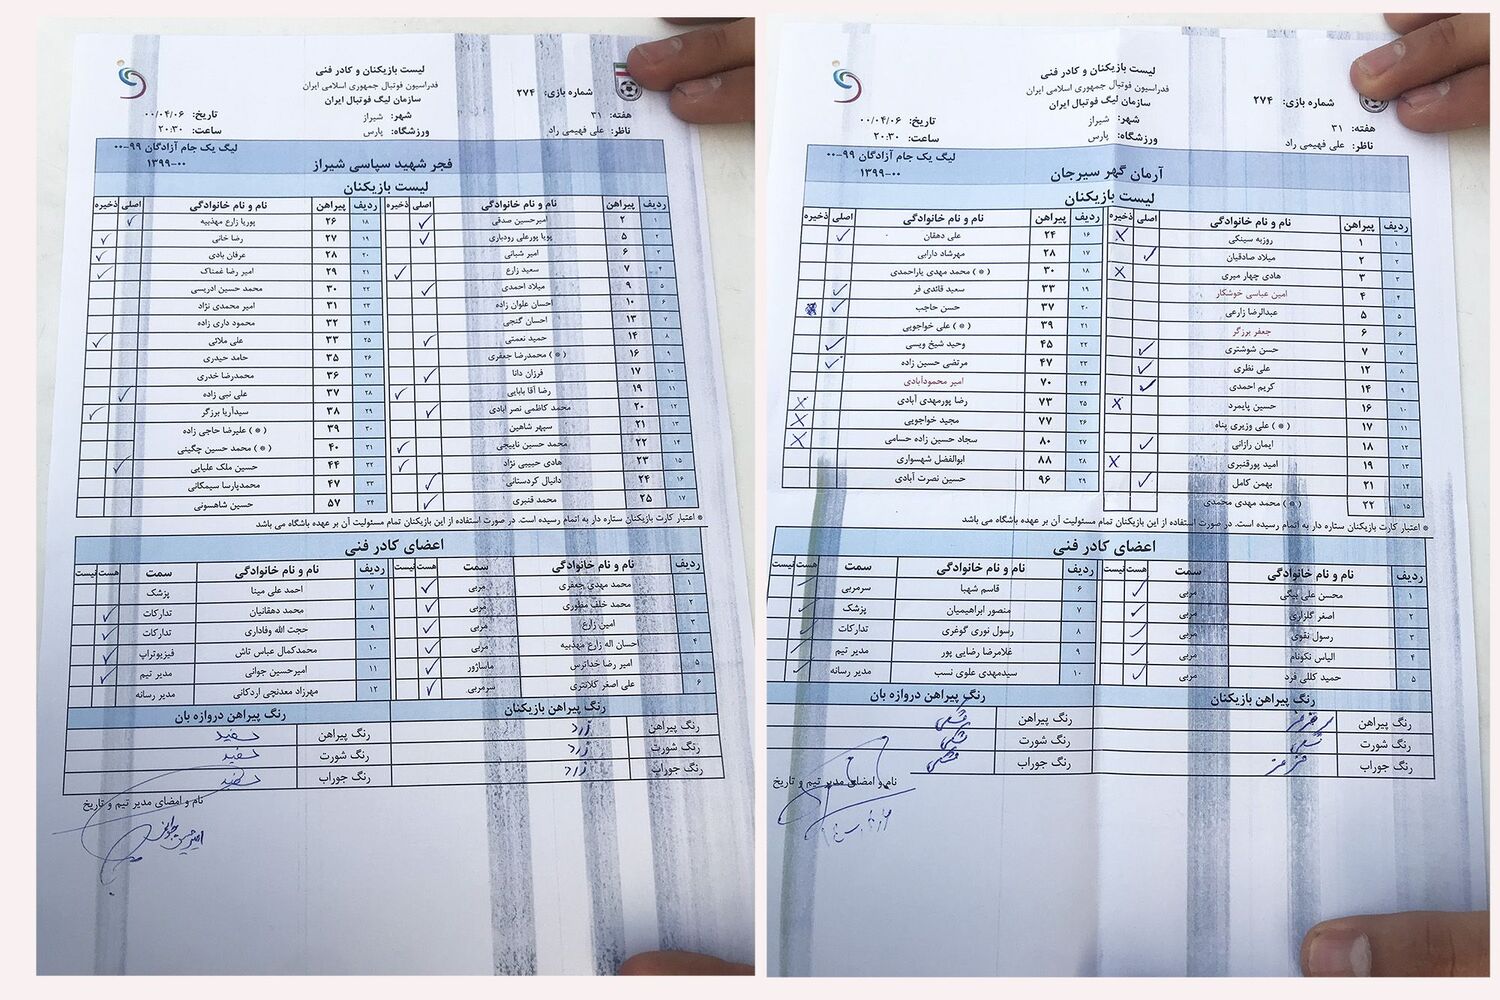 لیست بازیکنان و کادر فنی
فدراسیون فوتبال جمهوری اسلامی ایران
سازمان لیگ فوتبال ایران
شماره بازی: ۲۷۴
هفته: ۳۱ شهر: شیراز تاریخ: ۰۰/۰۴/۰۶
ناظر: علی فهیمی راد ورزشگاه: پارس ساعت: ۲۰:۳۰
فجر شهید سپاسی شیراز لیگ یک جام آزادگان ۹۹-۰۰
۱۳۹۹-۰۰
لیست بازیکنان
ردیف پیراهن نام و نام خانوادگی اصلی ذخیره ردیف پیراهن نام و نام خانوادگی اصلی ذخیره
۱ ۲ امیرحسین صدقی ✓ ۱۸ ۲۶ پوریا زارع مهذبیه ✓
۲ ۵ پویا پورعلی رودباری ✓ ۱۹ ۲۷ رضا خانی ✓
۳ ۶ امیر شبانی ۲۰ ۲۸ عرفان بادی ✓
۴ ۷ سعید زارع ✓ ۲۱ ۲۹ امیر رضا غمناک ✓
۵ ۹ میلاد احمدی ✓ ۲۲ ۳۰ محمد حسین ادریسی
۶ ۱۰ احسان علوان زاده ۲۳ ۳۱ امیر محمدی نژاد
۷ ۱۳ احسان گنجی ۲۴ ۳۲ محمود داری زاده
۸ ۱۴ حمید نعمتی ✓ ۲۵ ۳۳ علی ملائی ✓
۹ ۱۶ (*) محمدرضا جعفری ۲۶ ۳۵ حامد حیدری
۱۰ ۱۷ فرزان دانا ✓ ۲۷ ۳۶ محمدرضا خدری
۱۱ ۱۹ رضا آقا بابایی ✓ ۲۸ ۳۷ علی نبی زاده ✓
۱۲ ۲۰ محمد کاظمی نصر آبادی ✓ ۲۹ ۳۸ سیدآریا برزگر ✓
۱۳ ۲۱ سپهر شاهین ۳۰ ۳۹ (*) علیرضا حاجی زاده
۱۴ ۲۲ محمد حسین نابیجی ✓ ۳۱ ۴۰ (*) محمد حسین چگینی
۱۵ ۲۳ هادی حبیبی نژاد ✓ ۳۲ ۴۴ حسین ملک علیایی ✓
۱۶ ۲۴ دانیال کردستانی ✓ ۳۳ ۴۷ محمدپارسا سیمکانی
۱۷ ۲۵ محمد قنبری ✓ ۳۴ ۵۷ حسین شاهسونی
* اعتبار کارت بازیکنان ستاره دار به اتمام رسیده است. در صورت استفاده از این بازیکنان تمام مسئولیت آن بر عهده باشگاه می باشد
اعضای کادر فنی
ردیف نام و نام خانوادگی سمت هست نیست ردیف نام و نام خانوادگی سمت هست نیست
۱ محمد مهدی جعفری مربی ✓ ۷ احمد علی مینا پزشک
۲ محمد خلف مطوری مربی ✓ ۸ محمد دهقانیان تدارکات ✓
۳ امین زارع مربی ✓ ۹ حجت الله وفاداری تدارکات ✓
۴ احسان اله زارع مهذبیه مربی ✓ ۱۰ محمدکمال عباس تاش فیزیوتراپ ✓
۵ امیر رضا خداترس ماساژور ✓ ۱۱ امیرحسین جوانی مدیر تیم ✓
۶ علی اصغر کلانتری سرمربی ✓ ۱۲ مهرزاد معدنچی اردکانی مدیر رسانه
رنگ پیراهن بازیکنان رنگ پیراهن دروازه بان
رنگ پیراهن زرد رنگ پیراهن سفید
رنگ شورت زرد رنگ شورت سفید
رنگ جوراب زرد رنگ جوراب سفید
نام و امضای مدیر تیم و تاریخ
امیرحسین جوانی
لیست بازیکنان و کادر فنی
فدراسیون فوتبال جمهوری اسلامی ایران
سازمان لیگ فوتبال ایران
شماره بازی: ۲۷۴
هفته: ۳۱ شهر: شیراز تاریخ: ۰۰/۰۴/۰۶
ناظر: علی فهیمی راد ورزشگاه: پارس ساعت: ۲۰:۳۰
آرمان گهر سیرجان لیگ یک جام آزادگان ۹۹-۰۰
۱۳۹۹-۰۰
لیست بازیکنان
ردیف پیراهن نام و نام خانوادگی اصلی ذخیره ردیف پیراهن نام و نام خانوادگی اصلی ذخیره
۱ ۱ روزبه سینکی X ۱۶ ۲۴ علی دهقان ✓
۲ ۲ میلاد صادقیان ✓ ۱۷ ۲۸ مهرشاد دارابی
۳ ۳ هادی چهار میری X ۱۸ ۳۰ (*) محمد مهدی یاراحمدی
۴ ۴ امین عباسی خوشکار ۱۹ ۳۳ سعید قائدی فر ✓
۵ ۵ عبدالرضا زارعی ۲۰ ۳۷ حسن حاجب ✓
۶ ۶ جعفر برزگر ۲۱ ۳۹ (*) علی خواجویی
۷ ۷ حسن شوشتری ✓ ۲۲ ۴۵ وحید شیخ ویسی ✓
۸ ۱۲ علی نظری ✓ ۲۳ ۴۷ مرتضی حسین زاده ✓
۹ ۱۴ کریم احمدی ✓ ۲۴ ۷۰ امیر محمودآبادی
۱۰ ۱۶ حسین پایمرد X ۲۵ ۷۳ رضا پورمهدی آبادی X
۱۱ ۱۷ (*) علی وزیری پناه ۲۶ ۷۷ مجید خواجویی X
۱۲ ۱۸ ایمان رازانی ✓ ۲۷ ۸۰ سجاد حسین زاده حسامی X
۱۳ ۱۹ امید پورقنبری X ۲۸ ۸۸ ابوالفضل شهسواری
۱۴ ۲۱ بهمن کامل ✓ ۲۹ ۹۶ حسین نصرت آبادی
۱۵ ۲۲ (*) محمد مهدی محمدی
* اعتبار کارت بازیکنان ستاره دار به اتمام رسیده است. در صورت استفاده از این بازیکنان تمام مسئولیت آن بر عهده باشگاه می باشد
اعضای کادر فنی
ردیف نام و نام خانوادگی سمت هست نیست ردیف نام و نام خانوادگی سمت هست نیست
۱ محسن علی بیگی مربی ✓ ۶ قاسم شهبا سرمربی ✓
۲ اصغر گلزاری مربی ✓ ۷ منصور ابراهیمیان پزشک ✓
۳ رسول نقوی مربی ✓ ۸ رسول نوری گوغری تدارکات ✓
۴ الیاس نکونام مربی ✓ ۹ غلامرضا رضایی پور مدیر تیم ✓
۵ حمید کللی فرد مربی ✓ ۱۰ سیدمهدی علوی نسب مدیر رسانه ✓
رنگ پیراهن بازیکنان رنگ پیراهن دروازه بان
رنگ پیراهن رنگ پیراهن مشکی
رنگ شورت مشکی رنگ شورت مشکی
رنگ جوراب قرمز رنگ جوراب مشکی
نام و امضای مدیر تیم و تاریخ